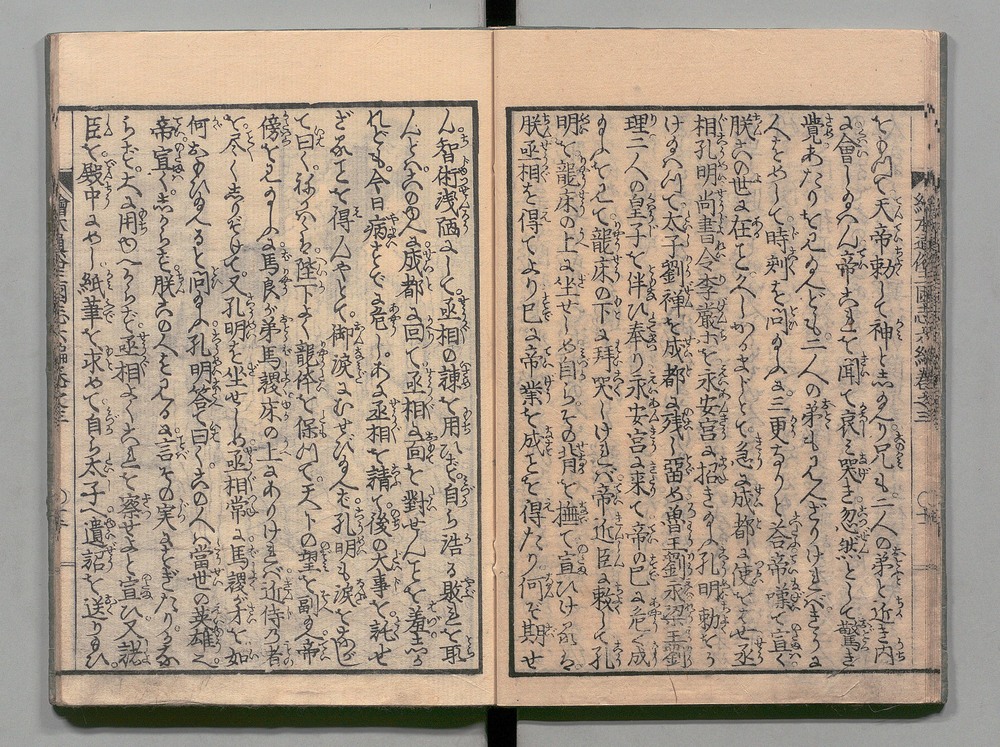 をもつて天帝勅して神となり兄も二人の弟と近き内
に會しなん帝これを聞て哀み哭き忽然として驚き
覺あたりを見んども二人の弟も見へざりければさらに
人をめして時刻を問ふに三更なりと答帝嘆て宣く
朕この世に在こと久しかるまじとて急に成都に使をはせ丞
相孔明尚書令李嚴等を永安宮に招き孔明勅をう
けたまつて太子劉禅を成都に残し留め魯王劉永梁王劉
理二人の皇子を伴ひ奉り永安宮に来て帝の已に危く成
たまふを見て龍床の下に拜哭しければ帝近臣に勅して孔
明を龍床の上に坐せしめ自らその背を撫て宣ひけるは
朕丞相を得てより已に帝業を成ことを得たり何ぞ期せ
ん智術浅陋にして丞相の諫を用ひず自ら浩る敗れを取
んとはこのゆへに成都に回て丞相に面を對せんことを羞しか
れども今日病もはや危しゆへに丞相を請て後の大事を託せ
ざることを得んやとて御涙にむせびたまへば孔明も涙をながし
て曰くねがはくは陛下よく龍体を保つて天下の望に副たまへ帝
傍を見たまふに馬良が弟馬謖床の上にありければ近侍の者
を尽くしりぞけて又孔明を坐せしめ丞相常に馬謖が才を如
何おもひたまへると問たまふ孔明答て曰くこの人は當世の英雄なり
帝宣くしからず朕この人をみるに言その実にすぎたりかな
らず大に用ゆべからず丞相よくこれを察せよと宣ひ又諸
臣を殿中にめし紙筆を求めて自ら太子へ遺詔を送りたまひ